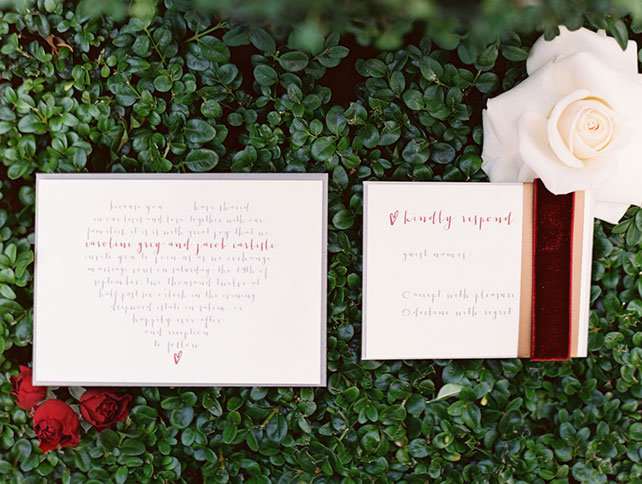 because you have shared
in our lives and love, together with our
families, it is with great joy that we
caroline grey and jacob carlisle
invite you to join us as we exchange
marriage vows on saturday, the
september, two thousand twelve at
half past six o'clock in the evening
estate in
happily ever after
and reception
to follow
kindly respond
guest names
accept with pleasure
decline with regret